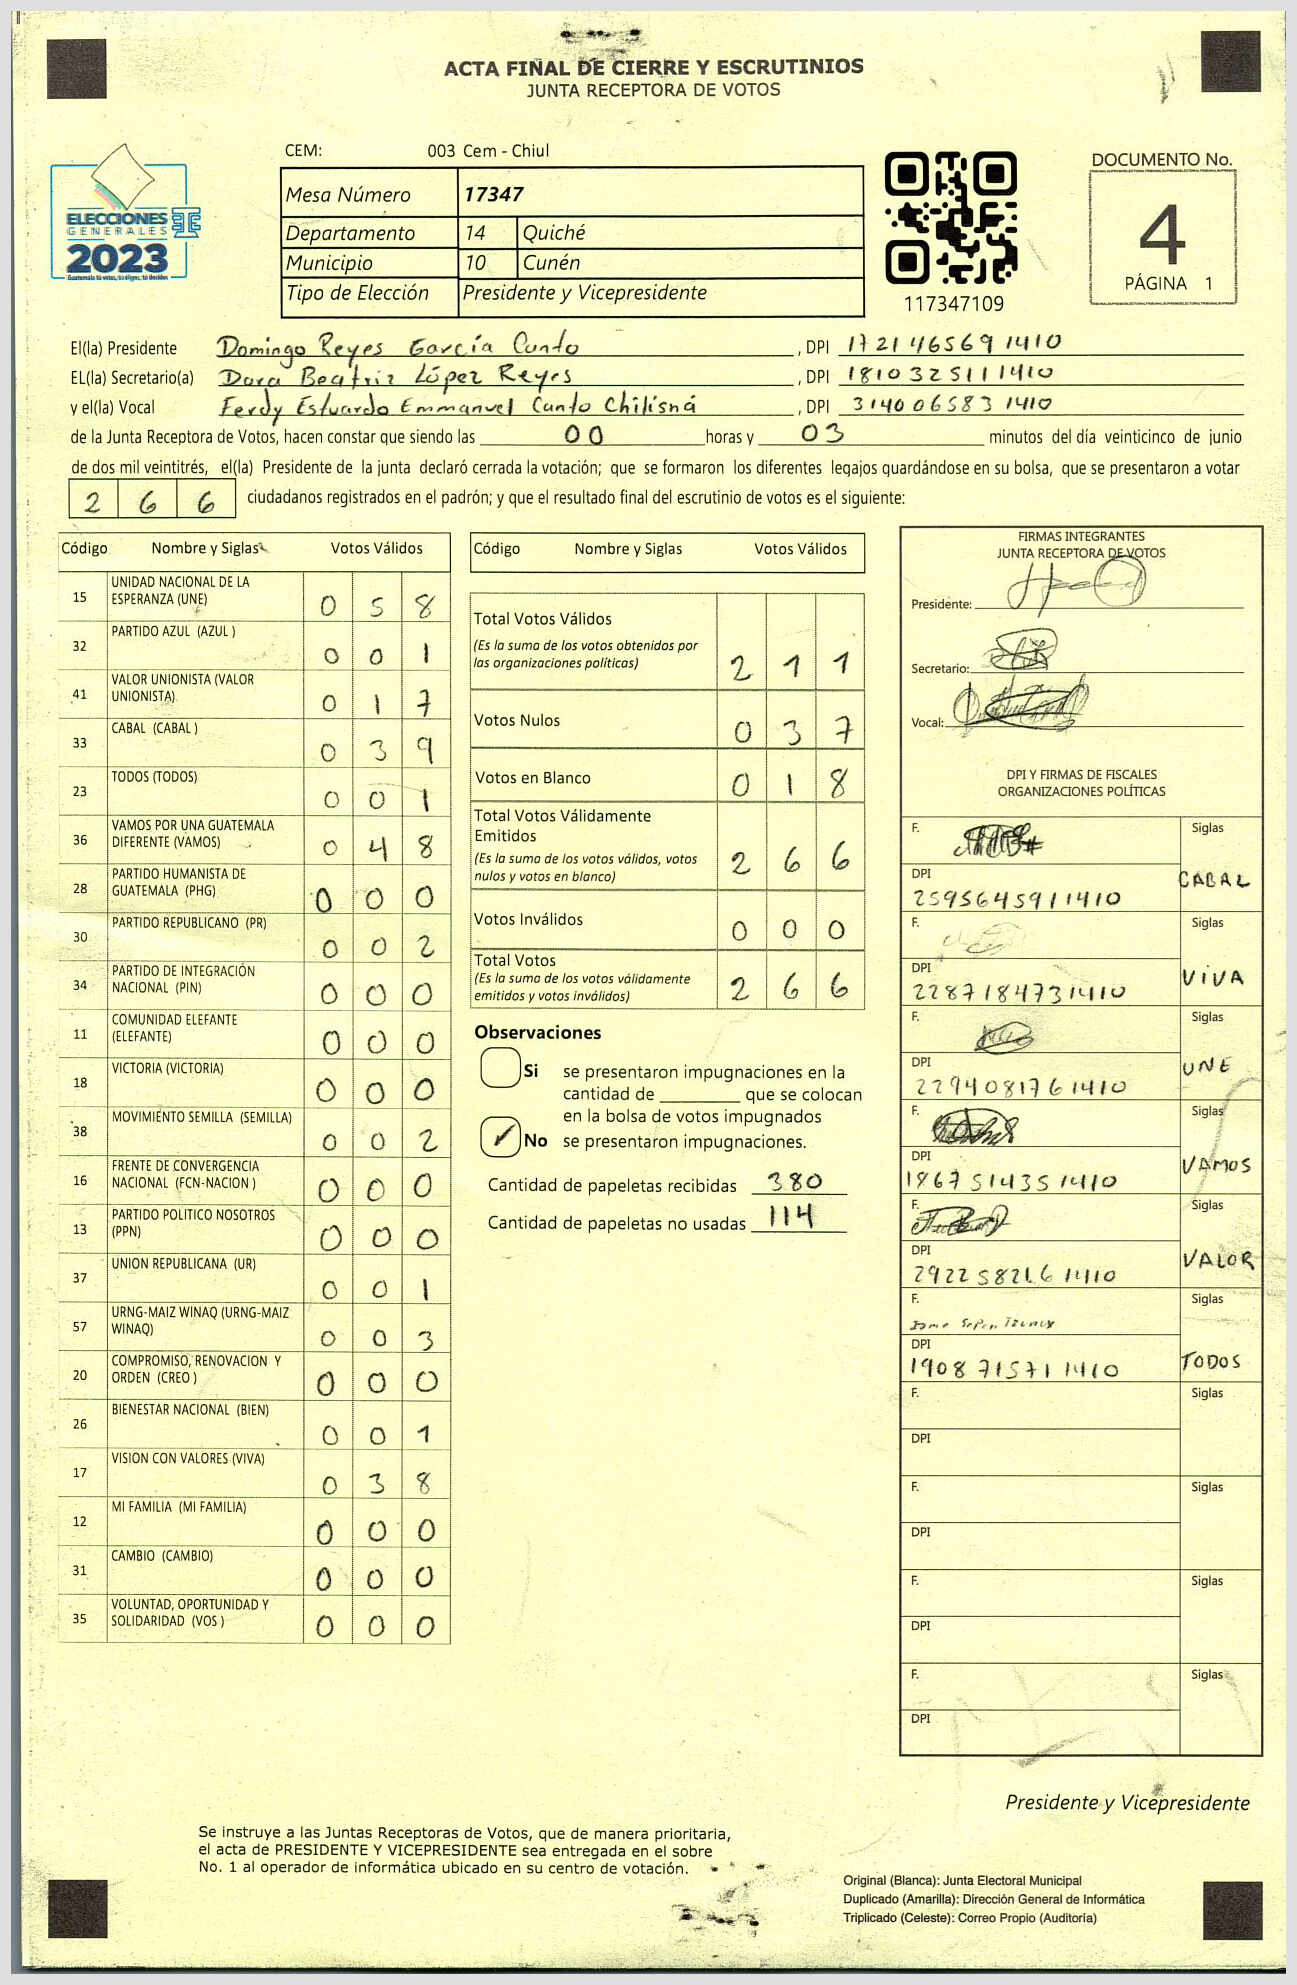 ACTA FINAL DE CIERRE Y ESCRUTINIOS
JUNTA RECEPTORA DE VOTOS
CEM: 003 Cem - Chiul
Mesa Número 17347
Departamento 14 Quiché
Municipio 10 Cunén
Tipo de Elección Presidente y Vicepresidente
ELECCIONES
GENERALES
2023
117347109
DOCUMENTO No.
4
PÁGINA 1
El(la) Presidente Domingo Reyes García Canto , DPI 1721465691410
EL(la) Secretario(a) Dora Beatriz López Reyes , DPI 1810325111410
y el(la) Vocal Ferdy Estuardo Emmanuel Canto Chilisná , DPI 3140065831410
de la Junta Receptora de Votos, hacen constar que siendo las 00 horas y 03 minutos del día veinticinco de junio
de dos mil veintitrés, el(la) Presidente de la junta declaró cerrada la votación; que se formaron los diferentes legajos guardándose en su bolsa, que se presentaron a votar
266 ciudadanos registrados en el padrón; y que el resultado final del escrutinio de votos es el siguiente:
Código Nombre y Siglas Votos Válidos
15 UNIDAD NACIONAL DE LA
ESPERANZA (UNE) 0 5 8
32 PARTIDO AZUL (AZUL ) 0 0 1
41 VALOR UNIONISTA (VALOR
UNIONISTA) 0 1 7
33 CABAL (CABAL ) 0 3 9
23 TODOS (TODOS) 0 0 1
36 VAMOS POR UNA GUATEMALA
DIFERENTE (VAMOS) 0 4 8
28 PARTIDO HUMANISTA DE
GUATEMALA (PHG) 0 0 0
30 PARTIDO REPUBLICANO (PR) 0 0 2
34 PARTIDO DE INTEGRACIÓN
NACIONAL (PIN) 0 0 0
11 COMUNIDAD ELEFANTE
(ELEFANTE) 0 0 0
18 VICTORIA (VICTORIA) 0 0 0
38 MOVIMIENTO SEMILLA (SEMILLA) 0 0 2
16 FRENTE DE CONVERGENCIA
NACIONAL (FCN-NACION ) 0 0 0
13 PARTIDO POLITICO NOSOTROS
(PPN) 0 0 0
37 UNION REPUBLICANA (UR) 0 0 1
57 URNG-MAIZ WINAQ (URNG-MAIZ
WINAQ) 0 0 3
20 COMPROMISO, RENOVACION Y
ORDEN (CREO ) 0 0 0
26 BIENESTAR NACIONAL (BIEN) 0 0 1
17 VISION CON VALORES (VIVA) 0 3 8
12 MI FAMILIA (MI FAMILIA) 0 0 0
31 CAMBIO (CAMBIO) 0 0 0
35 VOLUNTAD, OPORTUNIDAD Y
SOLIDARIDAD (VOS ) 0 0 0
Código Nombre y Siglas Votos Válidos
Total Votos Válidos
(Es la suma de los votos obtenidos por
las organizaciones políticas) 2 1 1
Votos Nulos 0 3 7
Votos en Blanco 0 1 8
Total Votos Válidamente
Emitidos
(Es la suma de los votos válidos, votos
nulos y votos en blanco) 2 6 6
Votos Inválidos 0 0 0
Total Votos
(Es la suma de los votos válidamente
emitidos y votos inválidos) 2 6 6
Observaciones
Si se presentaron impugnaciones en la
cantidad de ________ que se colocan
en la bolsa de votos impugnados
No se presentaron impugnaciones.
Cantidad de papeletas recibidas 380
Cantidad de papeletas no usadas 114
FIRMAS INTEGRANTES
JUNTA RECEPTORA DE VOTOS
Presidente:
Secretario:
Vocal:
DPI Y FIRMAS DE FISCALES
ORGANIZACIONES POLÍTICAS
F. Siglas
DPI CABAL
2595645911410
F. Siglas
DPI VIVA
2287184731410
F. Siglas
DPI UNE
2294081761410
F. Siglas
DPI VAMOS
1867514351410
F. Siglas
DPI VALOR
2922582161410
F. Siglas
DPI TODOS
1908715711410
F. Siglas
DPI
F. Siglas
DPI
F. Siglas
DPI
F. Siglas
DPI
Presidente y Vicepresidente
Se instruye a las Juntas Receptoras de Votos, que de manera prioritaria,
el acta de PRESIDENTE Y VICEPRESIDENTE sea entregada en el sobre
No. 1 al operador de informática ubicado en su centro de votación.
Original (Blanca): Junta Electoral Municipal
Duplicado (Amarilla): Dirección General de Informática
Triplicado (Celeste): Correo Propio (Auditoría)